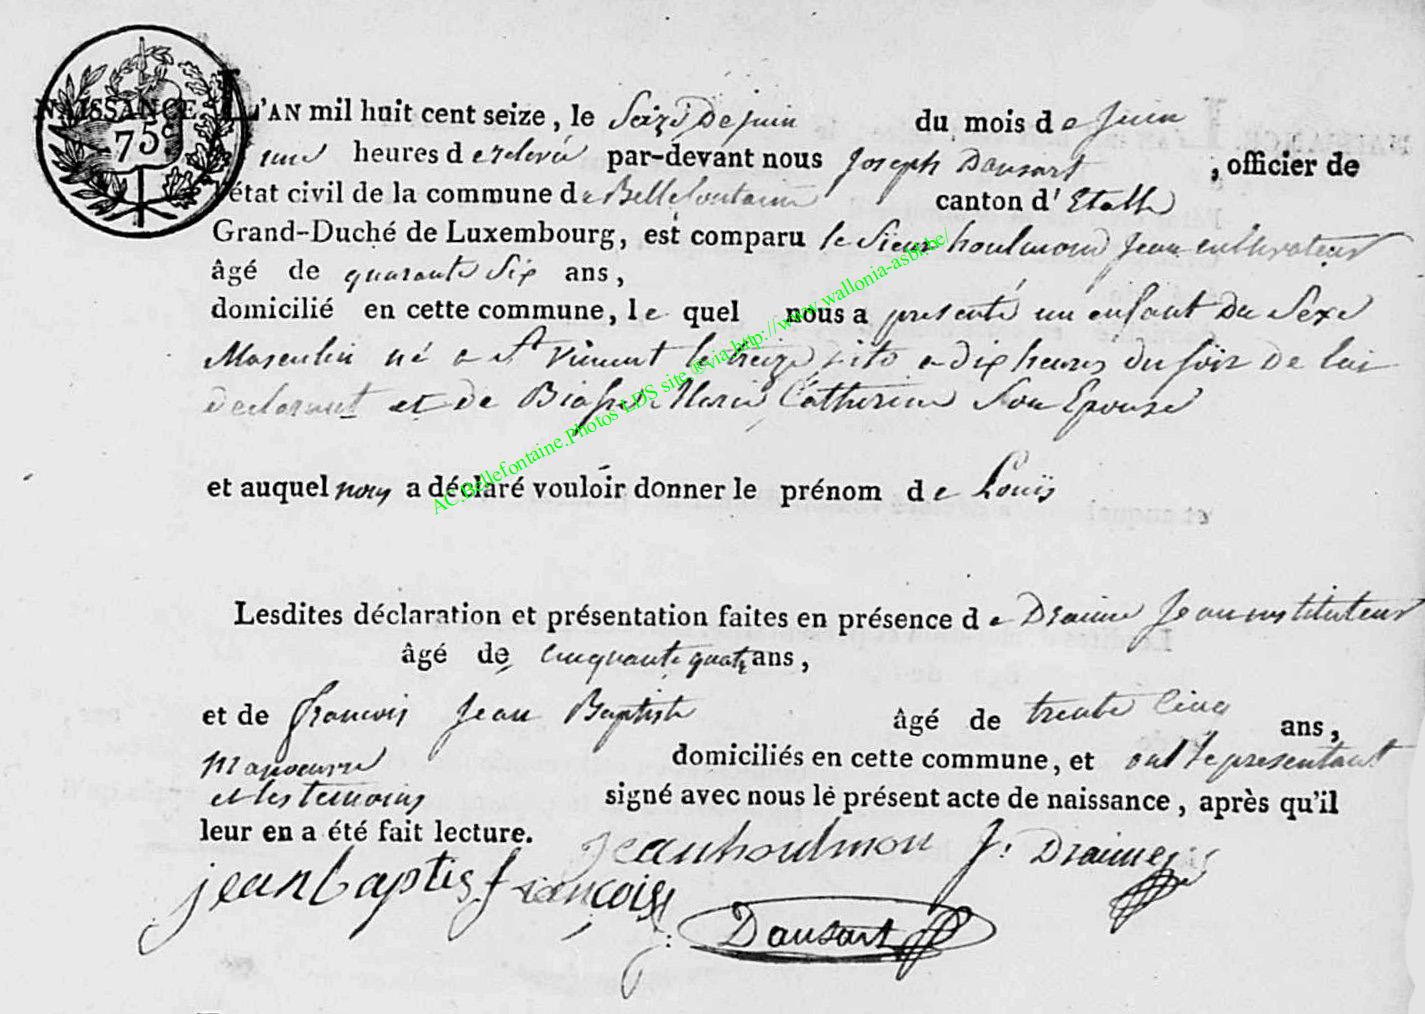 NAISSANCE
75c
L'AN mil huit cent seize, le Seize De juin du mois de Juin
une heures de relevée par-devant nous Joseph Dausart, officier de
l'état civil de la commune de Bellefontaine canton d'Etalle
Grand-Duché de Luxembourg, est comparu le Sieur houlmond Jean cultivateur
âgé de quarante Six ans,
domicilié en cette commune, le quel nous a presenté un enfant Du Sexe
Masculin né a St Vincent le treize dito a dix heures du soir De lui
declarant et de Marie Catherine Son Epouse
et auquel nous a déclaré vouloir donner le prénom de Louïs
Lesdites déclaration et présentation faites en présence de Draime Jean instituteur
âgé de cinquante quatre ans,
et de francois Jean Baptiste âgé de trente Cinq ans,
manoeuvre domiciliés en cette commune, et ont le presentant
et les temoins signé avec nous le présent acte de naissance, après qu'il
leur en a été fait lecture.
jean houlmon J: Draime
jean baptis françois
Dausart
AC.Bellefontaine.Photos LDS site @via http://www.wallonia-asbl.be/